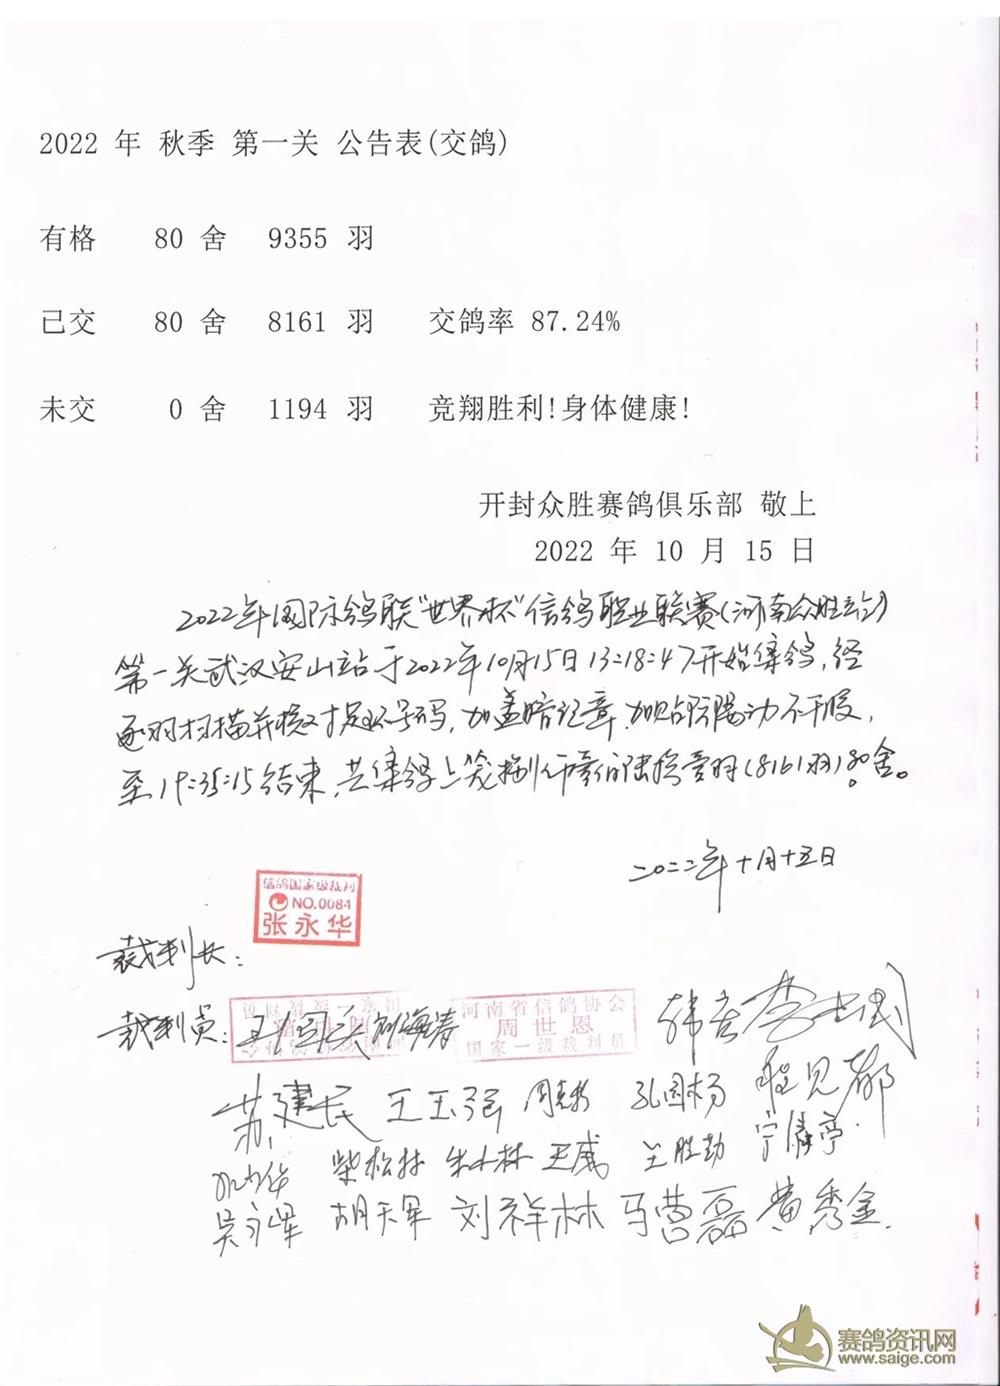 2022 年 秋季 第一关 公告表(交鸽)
有格 80 舍 9355 羽
已交 80 舍 8161 羽 交鸽率 87.24%
未交 0 舍 1194 羽 竞翔胜利!身体健康!
开封众胜赛鸽俱乐部 敬上
2022 年 10 月 15 日
2022年国际鸽联"世界杯"信鸽职业联赛(河南众胜站)
第一关武汉安山站于2022年10月15日13:18:47开始集鸽,经
逐羽扫描并核对足环号码,加盖暗记章,加贴防
至19:35:15结束,共集鸽上笼捌仟壹佰陆拾壹羽(8161羽)80舍。
二〇二二年十月十五日
信鸽国家级裁判
NO.0084
张永华
裁判长:
裁判员:
刘海涛
河南省信鸽协会
周世恩
国家一级裁判员
苏建民 王玉强 孔国杨
柴松林 朱小林 王威 王胜勤
吴永军 胡天军 刘祥林 马营磊 黄秀金
赛鸽资讯网
www.saige.com